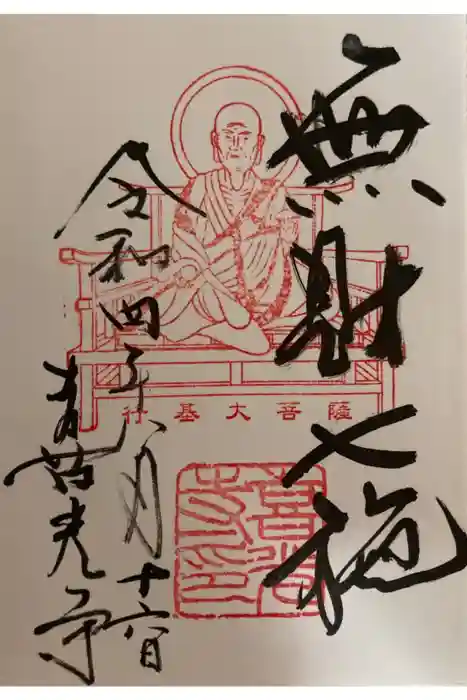 無財七施
令和四年八月十六日
喜光寺
行基大菩薩